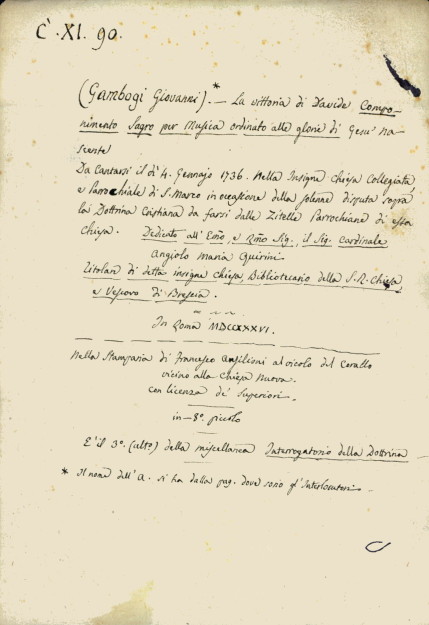 C. XI. 90.
(Gambogi Giovanni).* — La vittoria di Davide Compo-
nimento Sagro per Musica ordinato alle glorie di Gesù na-
scente
Da Cantarsi il dì 4. Gennajo 1736. nella Insigne Chiesa Collegiata,
e Parrochiale di S. Marco in occasione della solenne disputa sopra
la Dottrina Cristiana da farsi dalle Zitelle Parrochiane di essa
Chiesa. Dedicato all' Emo, e Rmo Sig. il Sig. Cardinale
Angiolo Maria Quirini
titolare di detta insigne chiesa, Bibliotecario della S. R. Chiesa,
e Vescovo di Brescia.
In Roma MDCCXXXVI.
Nella Stamparia di Francesco Ansilioni al vicolo del Corallo
vicino alla Chiesa Nuova.
con licenza de' Superiori.
in-8º. piccolo
È il 3º. (ulto) della miscellanea Interrogatorio della Dottrina
* Il nome dell' A. si ha dalla pag. dove sono gl' Interlocutori